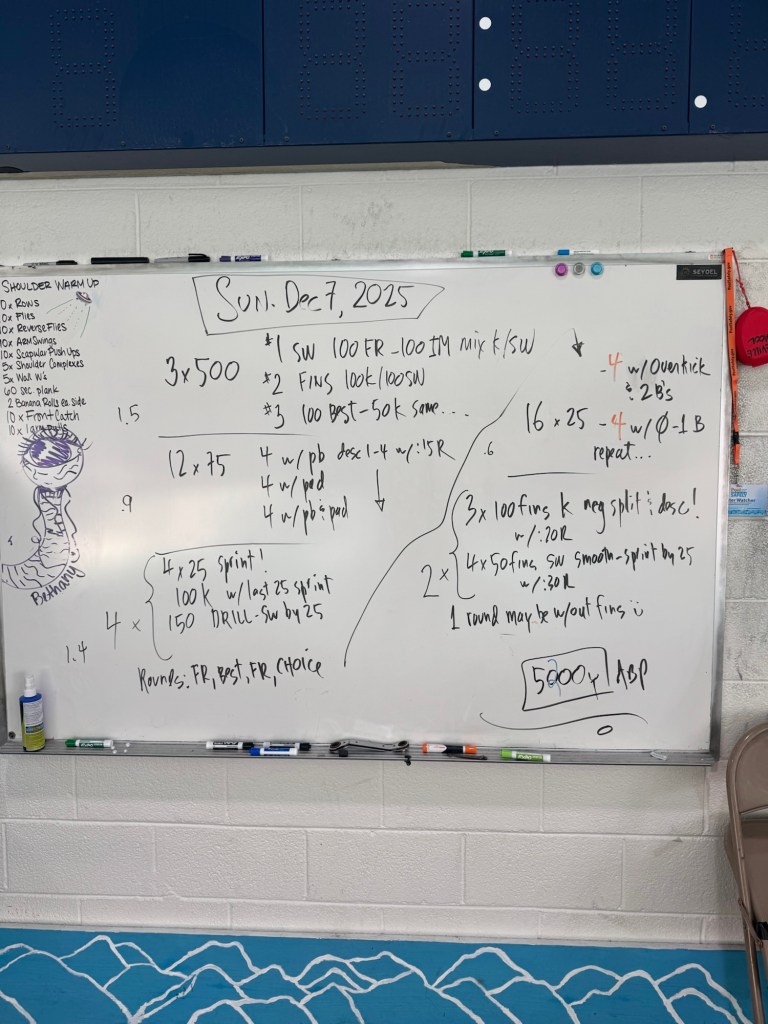 SHOULDER WARM UP
0x Rows
0x Flies
10x Reverse Flies
10x ARM Swings
10x Scapular Push Ups
5x Shoulder Complexes
5x Wall W's
60 sec. plank
2 Banana Rolls ea. side
10x Front Catch
10x
Bethany
Sun. Dec 7, 2025
3x500
#1 SW 100 FR - 100 IM mix K/SW
#2 FINS 100K/100SW
#3 100 Best - 50K same...
1.5
12 x 75
4 w/pb desc 1-4 w/:15R
4 w/pad
4 w/pb & pad
.9
4 x
4x25 sprint!
100K w/last 25 sprint
150 DRILL-SW by 25
1.4
Rounds: FR, Best, FR, CHoice
16 x 25
-4 w/Overkick & 2 B's
-4 w/ Ø-1 B
repeat...
.6
2 x
3x100 fins K neg split & desc!
w/:20R
4x50 fins SW smooth-sprint by 25
w/:30R
1 round may be w/out fins
ABP
SEYDEL